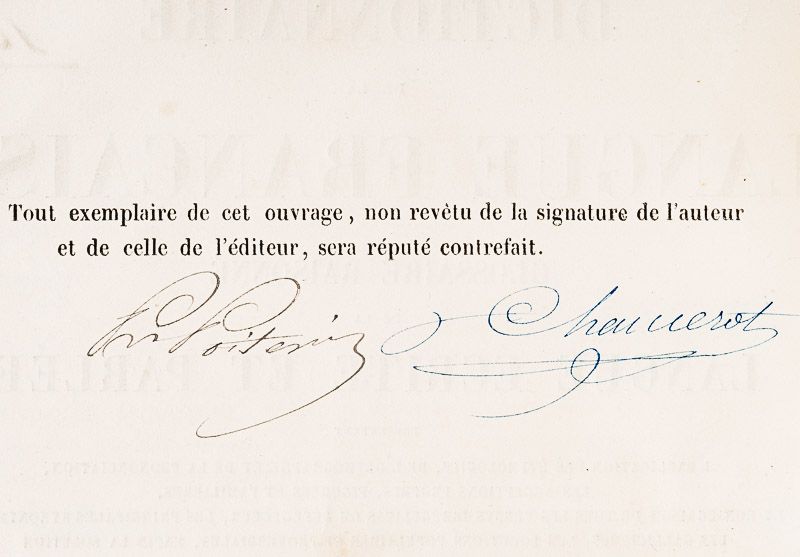 Tout exemplaire de cet ouvrage, non revêtu de la signature de l'auteur
et de celle de l'éditeur, sera réputé contrefait.
Poitevin Chamerot